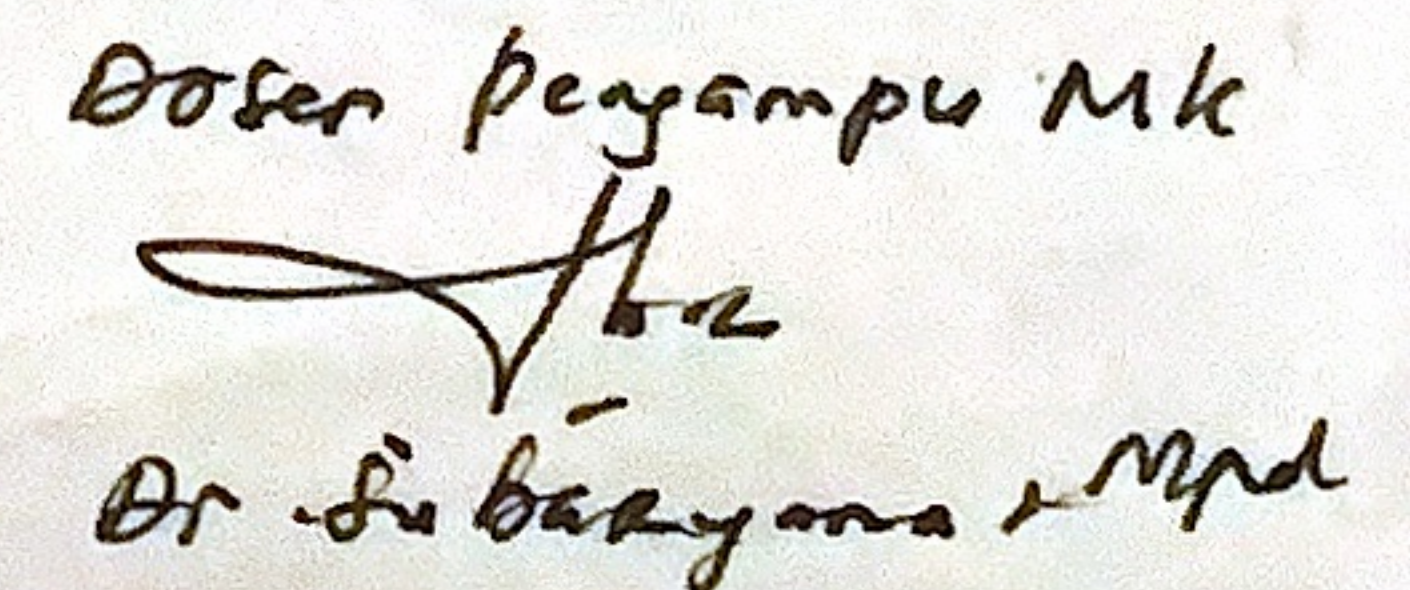 Dosen Pengampu MK
Dr. Subaryana, Mpd